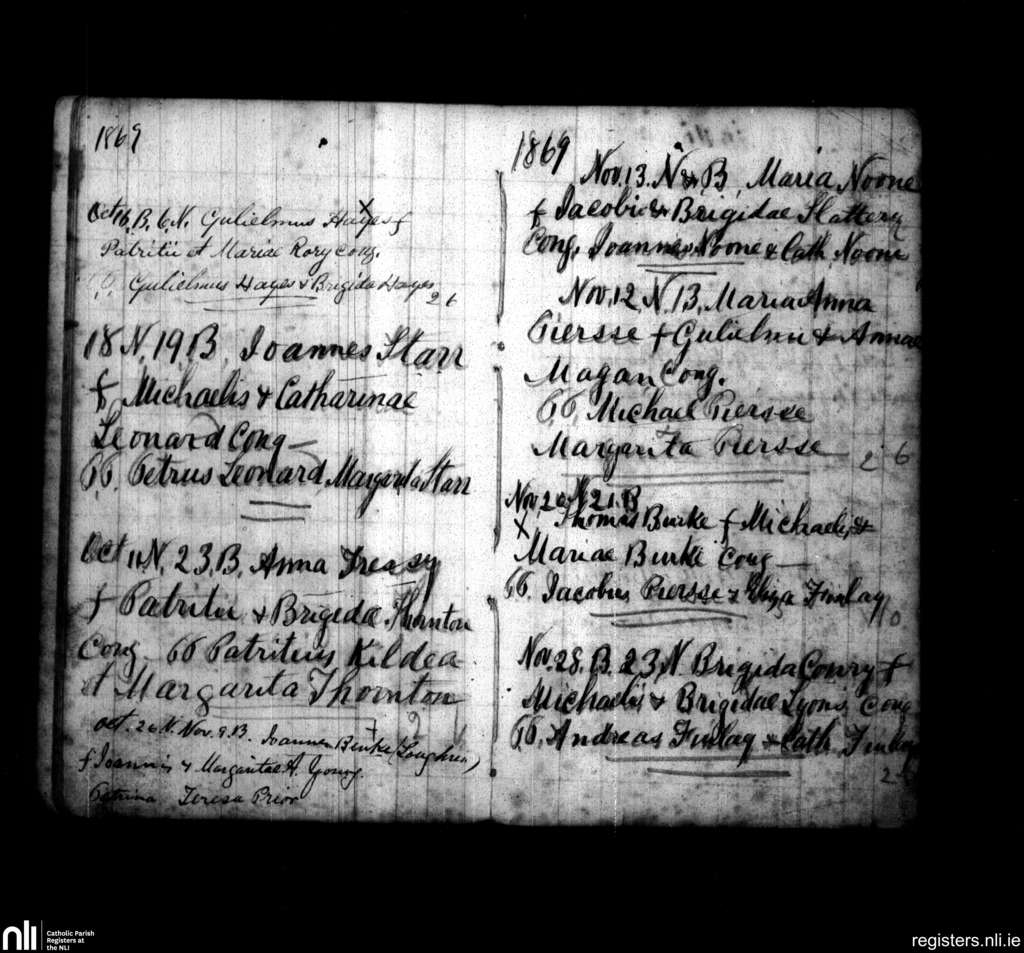 1869
Oct 16, B. 6 N. Gulielmus Hayes f
Patritii et Mariae Rory Cong.
Gulielmus Hayes & Brigida Hayes
2 6
18 N, 19 B, Joannes Starr
f Michaelis & Catharinae
Leonard Cong
PP. Petrus Leonard, Margarita Starr
Oct 11 N, 23, B. Anna Treasy
f Patritii & Brigidae Thornton
Cong PP Patritius Kildea
et Margarita Thornton
Oct. 26 N. Nov. 9. B. Joannes Burke (Loughrea)
f Joannis & Margaritae A. Young.
Patrina Teresa Prior
1869
Nov. 13. N & B, Maria Noone
f Jacobi & Brigidae Slattery
Cong. Joannes Noone & Cath. Noone
Nov. 12, N. 13, Maria Anna
Piersse f Gulielmi & Annae
Magan Cong.
PP. Michael Piersse
Margarita Piersse 2 6
Nov. 20 N 21. B
Thomas Burke f Michaelis &
Mariae Burke Cong
PP. Jacobus Piersse & Eliza Finlay
Nov. 28. B. 23, N Brigida Conry f
Michaelis & Brigidae Lyons, Cong
PP. Andreas Finlay & Cath. Finlay
2 6
nli
Catholic Parish
Registers at
the NLI
registers.nli.ie